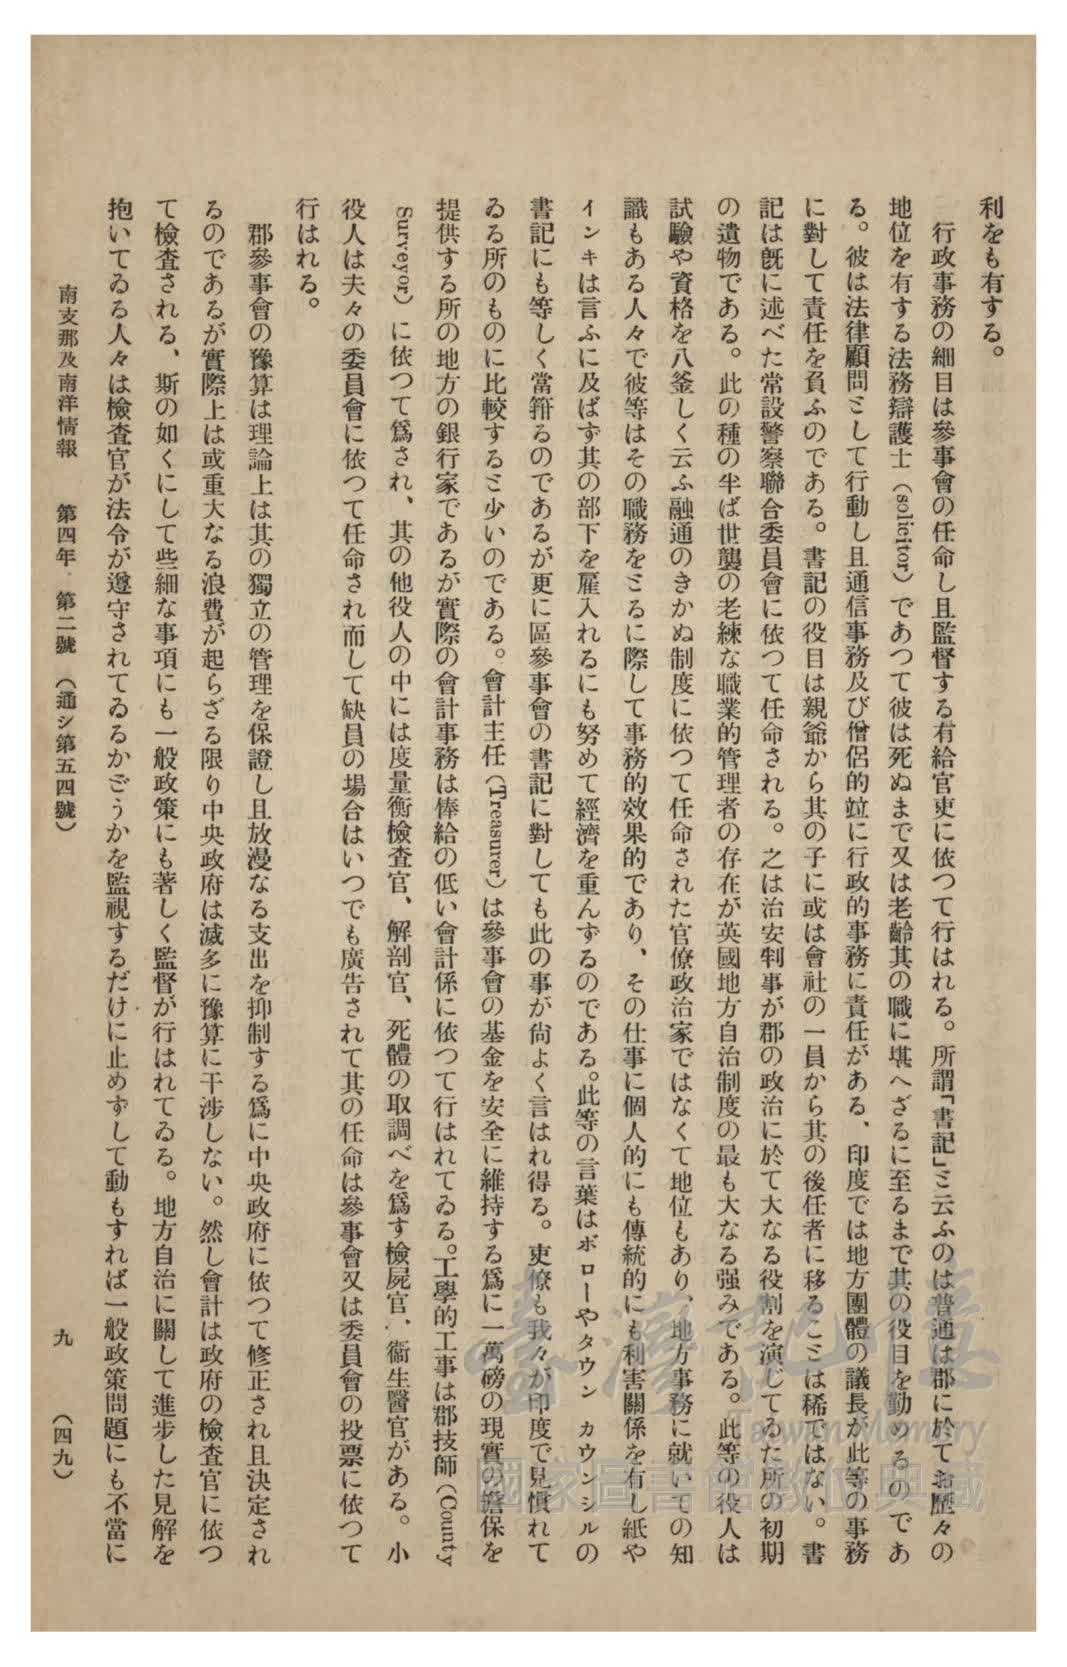 利をも有する。
行政事務の細目は參事會の任命し且監督する有給官吏に依つて行はれる。所謂「書記」と云ふのは普通は郡に於てお歷々の
地位を有する法務辯護士（solicitor）であつて彼は死ぬまで又は老齡其の職に堪へざるに至るまで其の役目を勤めるのであ
る。彼は法律顧問として行動し且通信事務及び僧侶的竝に行政的事務に責任がある、印度では地方團體の議長が此等の事務
に對して責任を負ふのである。書記の役目は親爺から其の子に或は會社の一員から其の後任者に移ることは稀ではない。書
記は旣に述べた常設警察聯合委員會に依つて任命される。之は治安判事が郡の政治に於て大なる役割を演じてゐた所の初期
の遺物である。此の種の半ば世襲の老練な職業的管理者の存在が英國地方自治制度の最も大なる强みである。此等の役人は
試驗や資格を八釜しく云ふ融通のきかぬ制度に依つて任命された官僚政治家ではなくて地位もあり、地方事務に就いての知
識もある人々で彼等はその職務をとるに際して事務的效果的であり、その仕事に個人的にも傳統的にも利害關係を有し紙や
インキは言ふに及ばず其の部下を雇入れるにも努めて經濟を重んずるのである。此等の言葉はボローやタウン カウンシルの
書記にも等しく當箝るのであるが更に區參事會の書記に對しても此の事が尙よく言はれ得る。吏僚も我々が印度で見慣れて
ゐる所のものに比較すると少いのである。會計主任（Treasurer）は參事會の基金を安全に維持する爲に一萬磅の現實の擔保を
提供する所の地方の銀行家であるが實際の會計事務は俸給の低い會計係に依つて行はれてゐる。工學的工事は郡技師（County
Surveyor）に依つて爲され、其の他役人の中には度量衡檢査官、解剖官、死體の取調べを爲す檢屍官、衞生醫官がある。小
役人は夫々の委員會に依つて任命され而して缺員の場合はいつでも廣告されて其の任命は參事會又は委員會の投票に依つて
行はれる。
郡參事會の豫算は理論上は其の獨立の管理を保證し且放漫なる支出を抑制する爲に中央政府に依つて修正され且決定され
るのであるが實際上は或重大なる浪費が起らざる限り中央政府は滅多に豫算に干涉しない。然し會計は政府の檢査官に依つ
て檢査される、斯の如くにして些細な事項にも一般政策にも著しく監督が行はれてゐる。地方自治に關して進步した見解を
抱いてゐる人々は檢査官が法令が遵守されてゐるかどうかを監視するだけに止めずして動もすれば一般政策問題にも不當に
南支那及南洋情報 第四年 第二號（通シ第五四號） 九 （四九）
臺灣記憶
Taiwan Memory
國家圖書館數位典藏